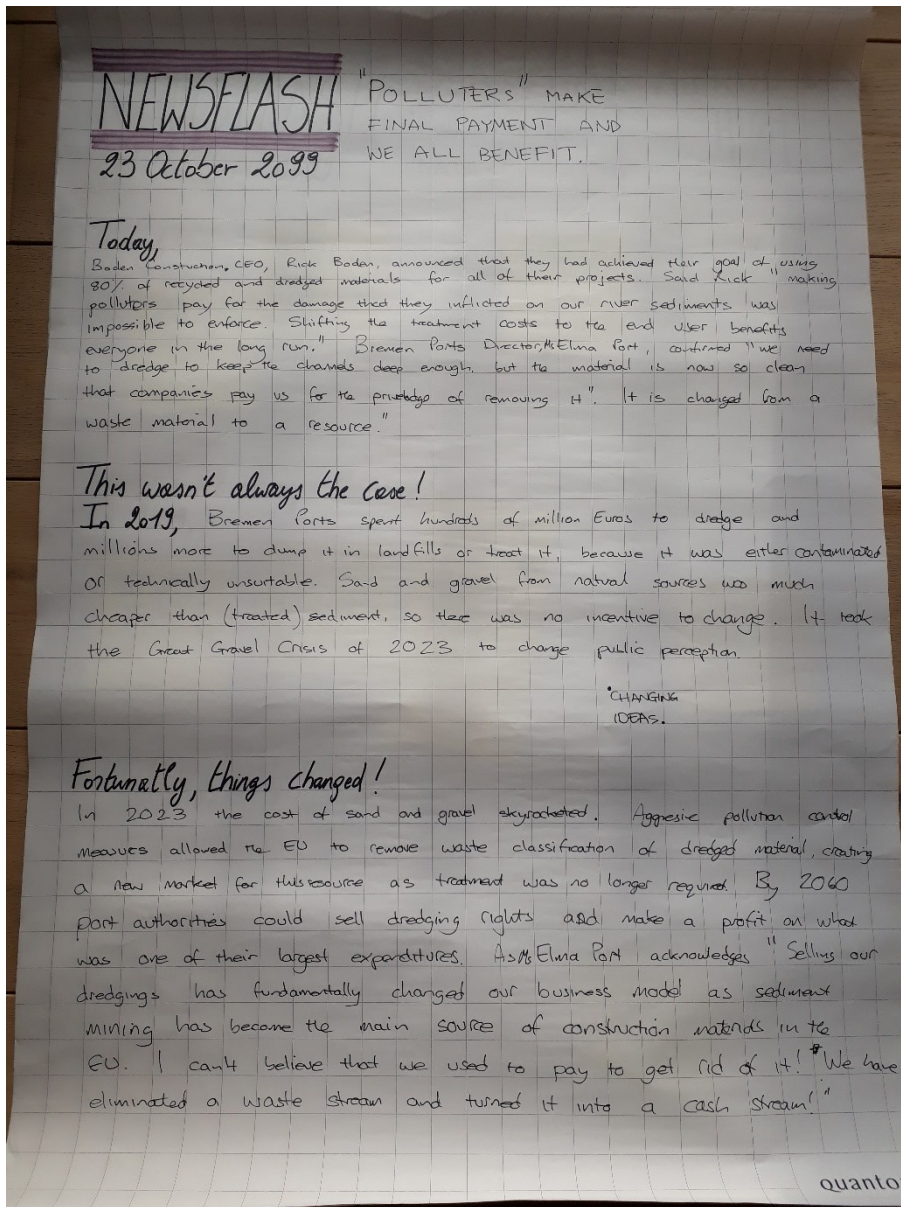 NEWSFLASH
23 October 2099
"POLLUTERS" MAKE
FINAL PAYMENT AND
WE ALL BENEFIT.
Today,
Boden Construction, CEO, Rick Boden, announced that they had achieved their goal of using
80% of recycled and dredged materials for all of their projects. Said Rick "making
polluters pay for the damage that they inflicted on our river sediments was
impossible to enforce. Shifting the treatment costs to the end user benefits
everyone in the long run." Bremen Ports Director, Ms Elma Port, confirmed "we need
to dredge to keep the channels deep enough, but the material is now so clean
that companies pay us for the priveledge of removing it". It is changed from a
waste material to a resource."
This wasn't always the case!
In 2019, Bremen Ports spent hundreds of million Euros to dredge and
millions more to dump it in landfills or treat it, because it was either contaminated
or technically unsuitable. Sand and gravel from natural sources was much
cheaper than (treated) sediment, so there was no incentive to change. It took
the Great Gravel Crisis of 2023 to change public perception.
*CHANGING
IDEAS.
Fortunatly, things changed!
In 2023 the cost of sand and gravel skyrocketed. Aggresive pollution control
measures allowed the EU to remove waste classification of dredged material, creating
a new market for this resource as treatment was no longer required. By 2060
port authorities could sell dredging rights and make a profit on what
was one of their largest expenditures. As Ms Elma Port acknowledges "Selling our
dredgings has fundamentally changed our business model as sediment
mining has become the main source of construction materials in the
EU. I can't believe that we used to pay to get rid of it! "We have
eliminated a waste stream and turned it into a cash stream!"
quanto